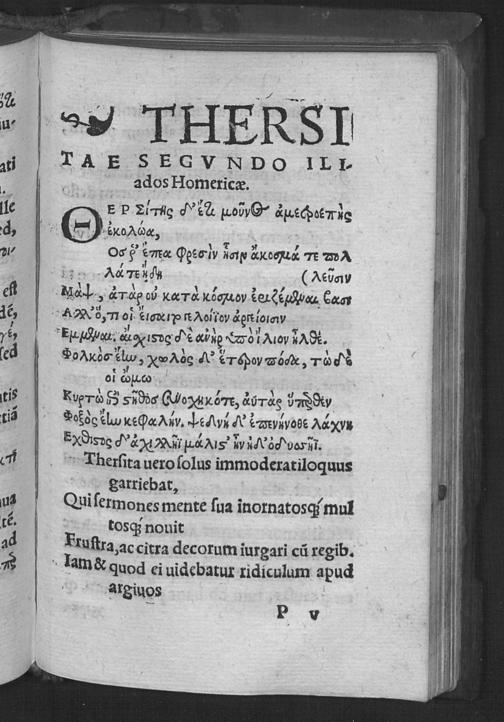 THERSI
TAE SEGVNDO ILI-
ados Homericæ.
ΘΕΡΣίτης δ' ἔτι μοῦνος ἀμετροεπὴς
ἐκολώα,
Ος ῥ' ἔπεα φρεσὶν ᾗσιν ἄκοσμά τε πολ
λά τε ᾔδη (λεῦσιν
Μὰψ, ἀτὰρ οὐ κατὰ κόσμον ἐριζέμεναι βασι
Αλλ' ὅ, τι οἱ εἴσαιτο γελοίϊον ἀργείοισιν
Εμμεναι. αἴσχιστος δὲ ἀνὴρ ὑπὸ ἴλιον ἦλθε.
Φολκὸς ἔην, χωλὸς δ' ἕτερον πόδα, τὼ δέ
οἱ ὤμω
Κυρτὼ ἐπὶ στῆθος συνοχηκότε, αὐτὰρ ὕπερθεν
Φοξὸς ἔην κεφαλήν. ψεδνὴ δ' ἐπενήνοθε λάχνη
Εχθιστος δ' ἀχιλλῆϊ μάλιστ' ἦν ἠδ' ὀδυσσῆϊ.
Thersita uero solus immoderatiloquus
garriebat,
Qui sermones mente sua inornatosq́; mul
tosq́; nouit
Frustra, ac citra decorum iurgari cũ regib.
Iam & quod ei uidebatur ridiculum apud
argiuos
P v
ati
lle
ed,
est
dẽ,
sed
tiã
ua
tẽ.
ad